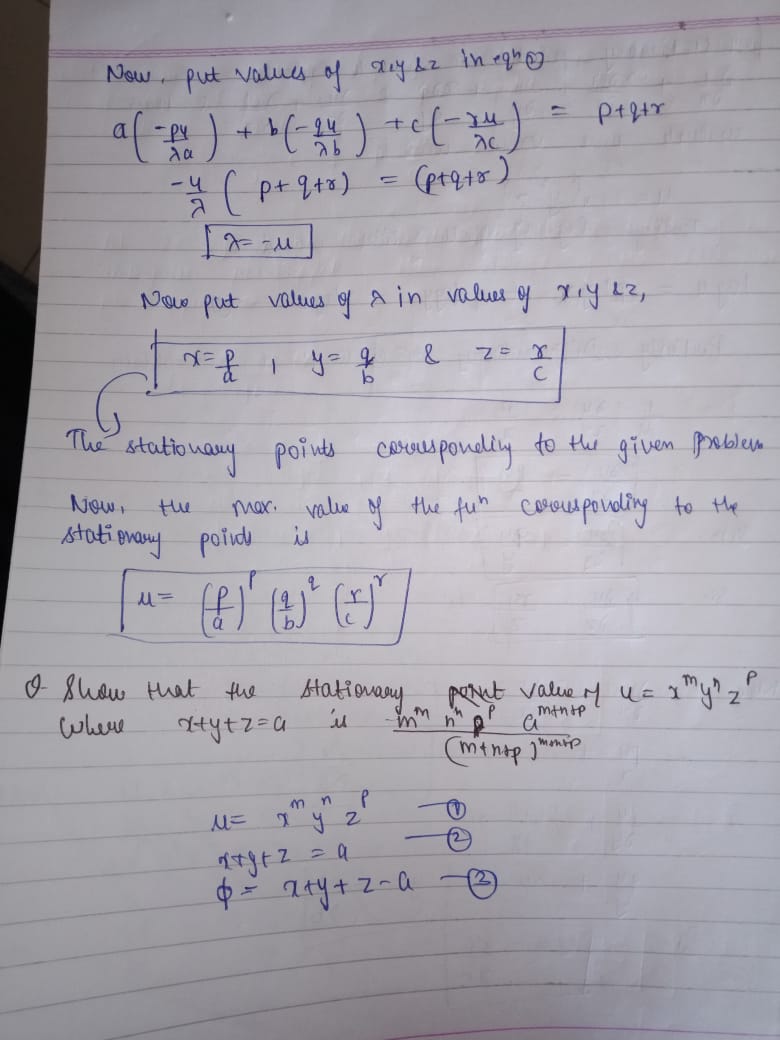 Now, put values of x,y & z in eqⁿ ②
a(-pu/λa) + b(-qu/λb) + c(-ru/λc) = p+q+r
-u/λ (p+q+r) = (p+q+r)
λ = -u
Now put values of λ in values of x,y & z,
x = p/a , y = q/b & z = r/c
The stationary points corresponding to the given problem
Now, the max. value of the fuⁿ corresponding to the
stationary points is
u = (p/a)^p (q/b)^q (r/c)^r
Q Show that the stationary point value of u = x^m y^n z^p
where x+y+z=a is m^m n^n p^p a^(m+n+p) / (m+n+p)^(m+n+p)
u = x^m y^n z^p — ①
x+y+z = a — ②
φ = x+y+z-a — ③